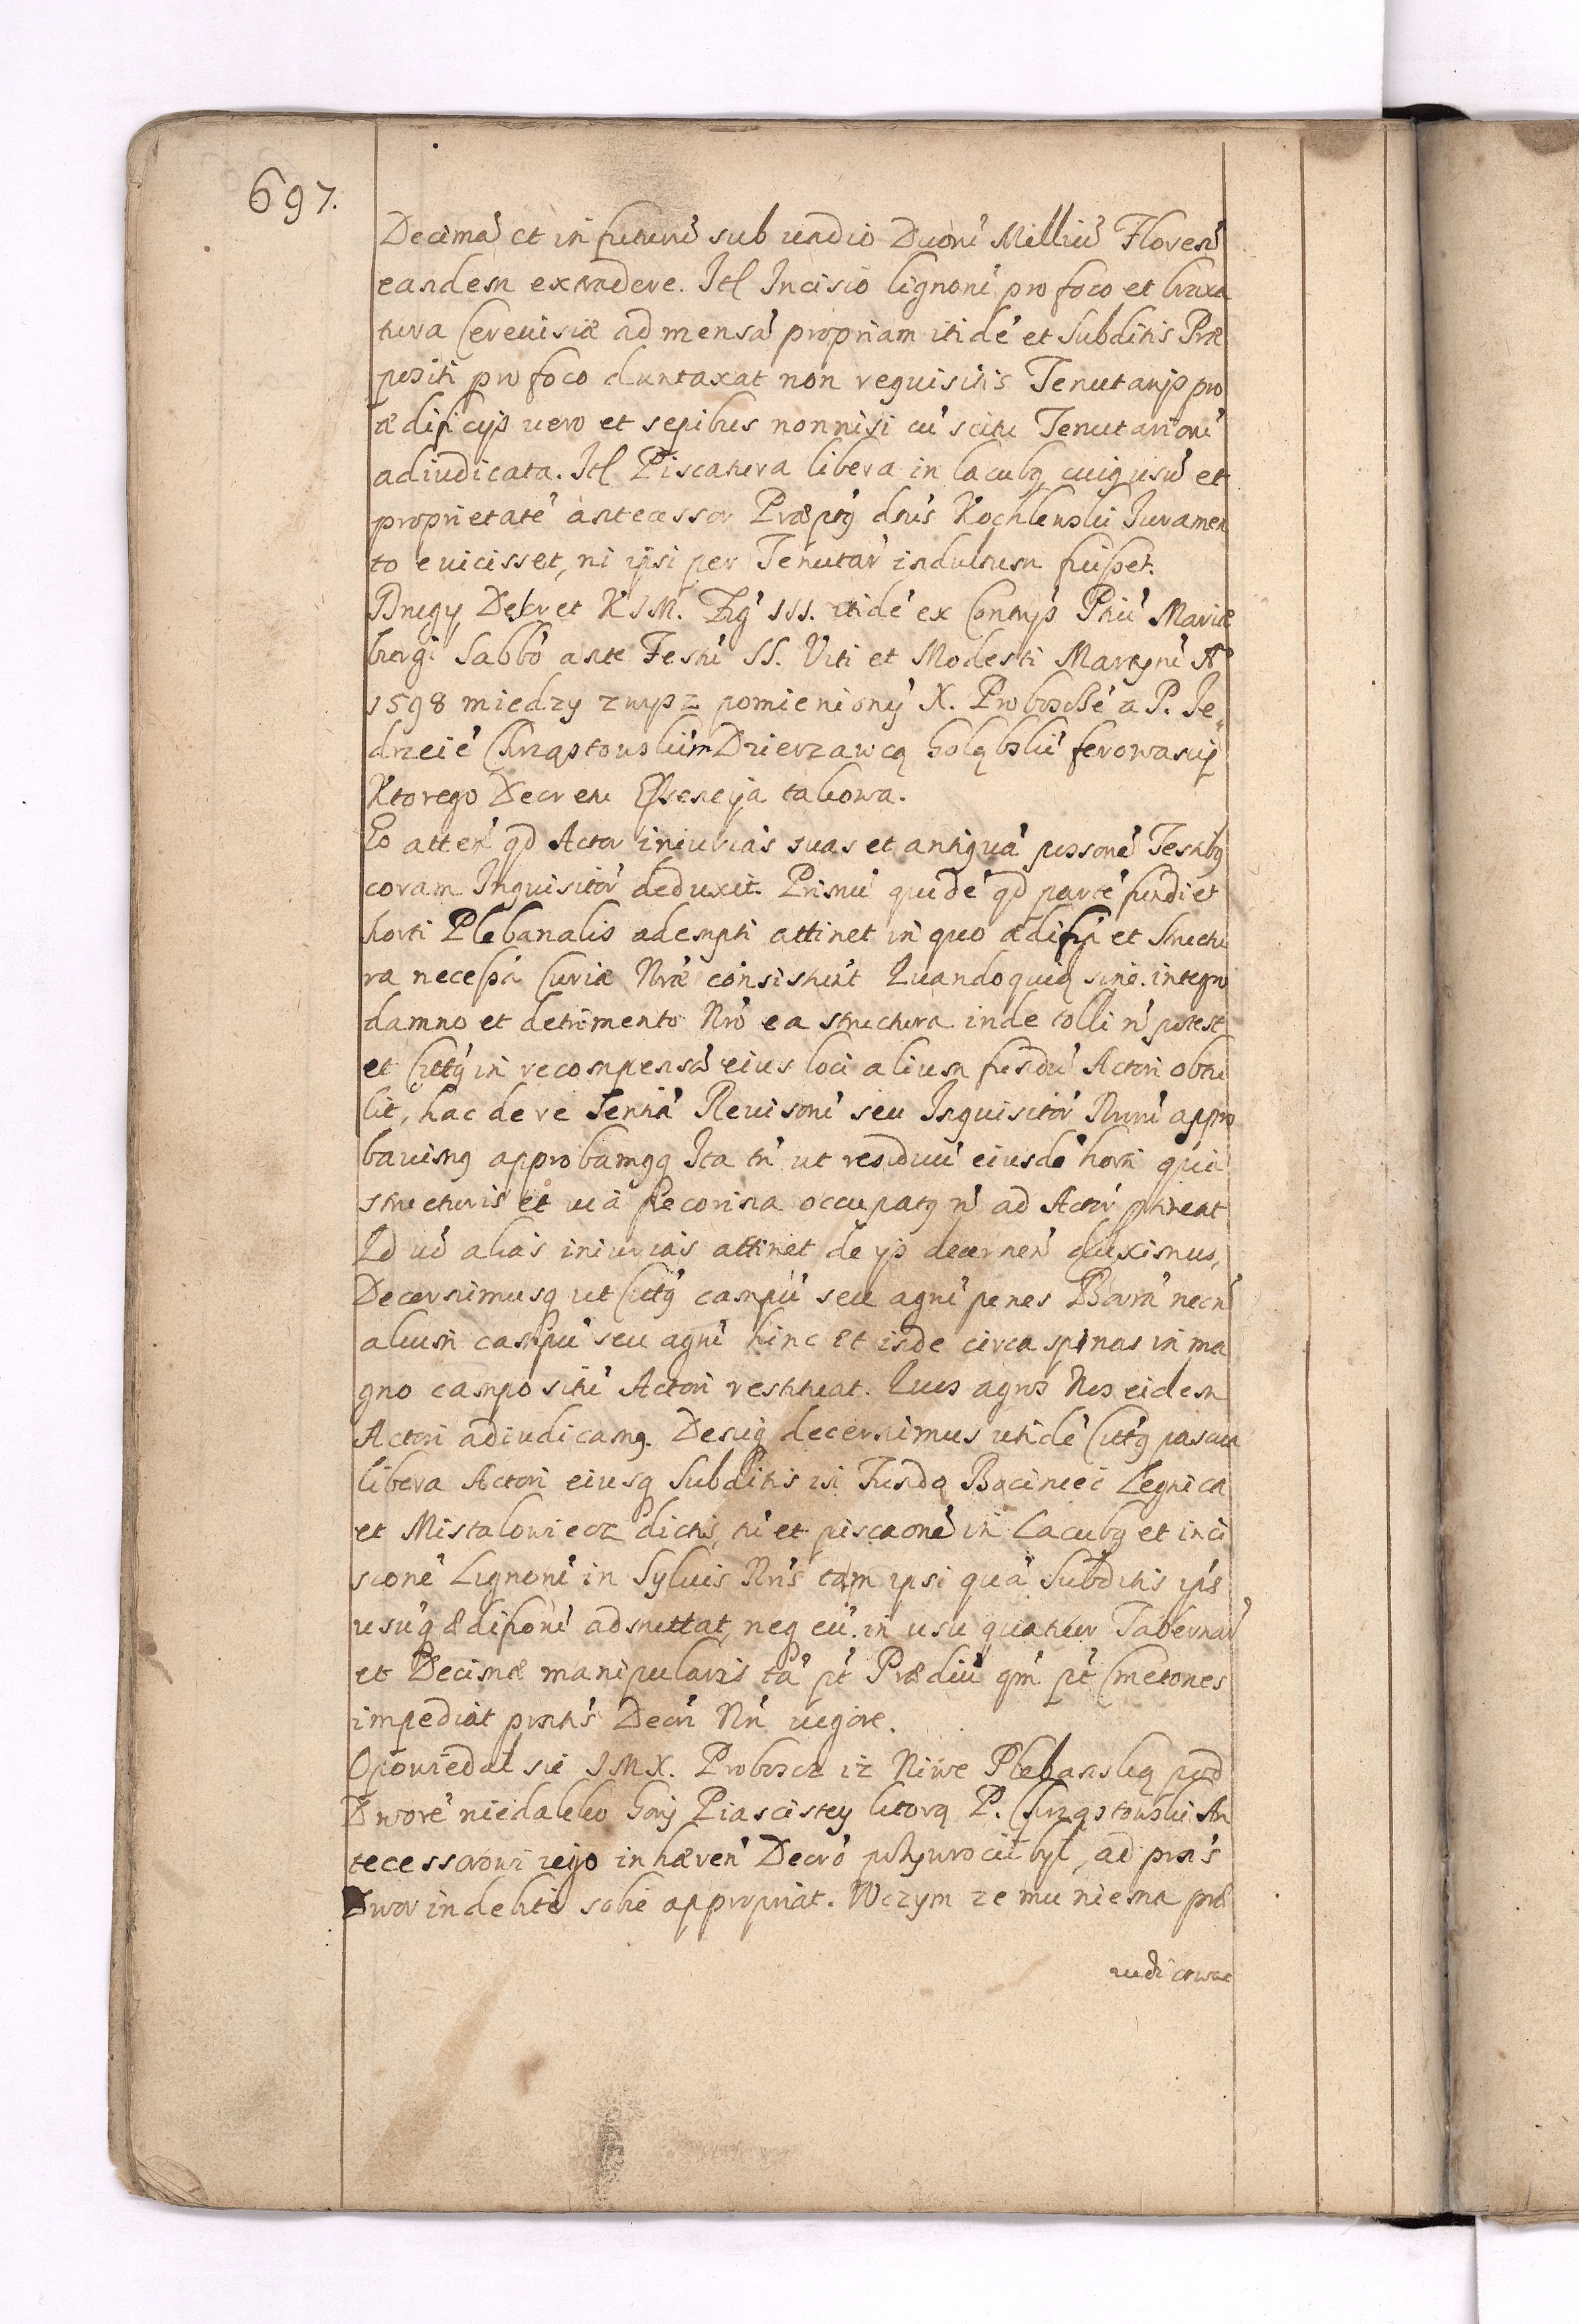 697.
Decimã et in futurũ sub vadio Duorũ Milliũ Floren̄
eandem extradere. Itẽ Incisio lignorũ pro foco et braxa
tura Cerevisiæ ad mensã propriam itidẽ et Subditis Præ
positi pro foco duntaxat non requisitis Tenutarijs pro
ædificijs vero et sepibus nonnisi cũ scitu Tenutariorũ
adiudicata. Itẽ Piscatura libera in lacubꝰ, cuiꝰ usũ et
proprietatẽ antecessor Præptꝰ dnus Kochlewski Iuramen
to evicisset, ni ipsi per Tenutar̃ indultum fuisset.
Drugy Dekret KJM. Zyg̃ III. itidẽ ex Contrijs Ptiũ Mariæ
burgi Sabbõ ante Festũ SS. Viti et Modesti Martyrũ Aº
1598 miedzy zwysz pomieniony̅ X. Proboscẽ a P. Je„
drzeiẽ Chrząstowskiim Dzierzawcą Golębskĩ ferowany̅
Ktorego Decretu Essencyja takowa.
Eo atten̄ qd Actor iniurias suas et antiquã possonẽ Testibꝰ
coram Inquisitor̃ deduxit. Primũ quidẽ qd partẽ fundi et
horti Plebanalis adempti attinet in quo ædifia et structu
ra necessa Curiæ Nræ consistunt Quandoquidẽ sine integro
damno et detrimento Nro ea structura inde tolli ñ potest
et Cittꝰ in recompensã eius loci alium fundũ Actori obtu
lit, hac de re Sentiã Revisorũ seu Inquisitor̃ Nrorũ appro
bavimꝰ approbamꝰqꝫ Ita tñ ut residuũ eiusdẽ horti quã
structuris et via pecorina occupatꝰ ñ ad Actor̃ ptineat
Qd vo alias iniurias attinet de ijs decernen̄ duximus,
Decernimusqꝫ ut Cittꝰ campũ seu agrũ penes Barã necñ
alium campũ seu agrũ hinc et inde circa spinas in ma
gno campo sitũ Actori restituat. Quos agros Nos eidem
Actori adiudicamꝰ. Deniqꝫ decernimus utidẽ Cittꝰ pascua
libera Actori eiusqꝫ Subditis in Fundo Baciniec Legnica
et Mistalowiecz dictis, tũ et piscaonẽ in Lacubꝰ et inci
sionẽ Lignorũ in Sylvis Nris tam ipsi quã Subditis ips
usuqꝫ ædifiorũ admittat, neqꝫ eũ in usu quatuor Tabernar̃
et Decimæ manipularis tã pt Prædiũ qm̃ pt Cmetones
impediat prntis Decri Nri vigore.
Opowiedał sie JMX. Proboscz iz Niwe Plebanską pod
Dworẽ niedaleko Gory Piascistey ktorą P. Chrząstowski An
tecessorowi iego inhæren̄ Decrõ przywrocił był, ad prns
Dwor indebite sobie appropriat. Wczym ze mu niema præ
iudicowac